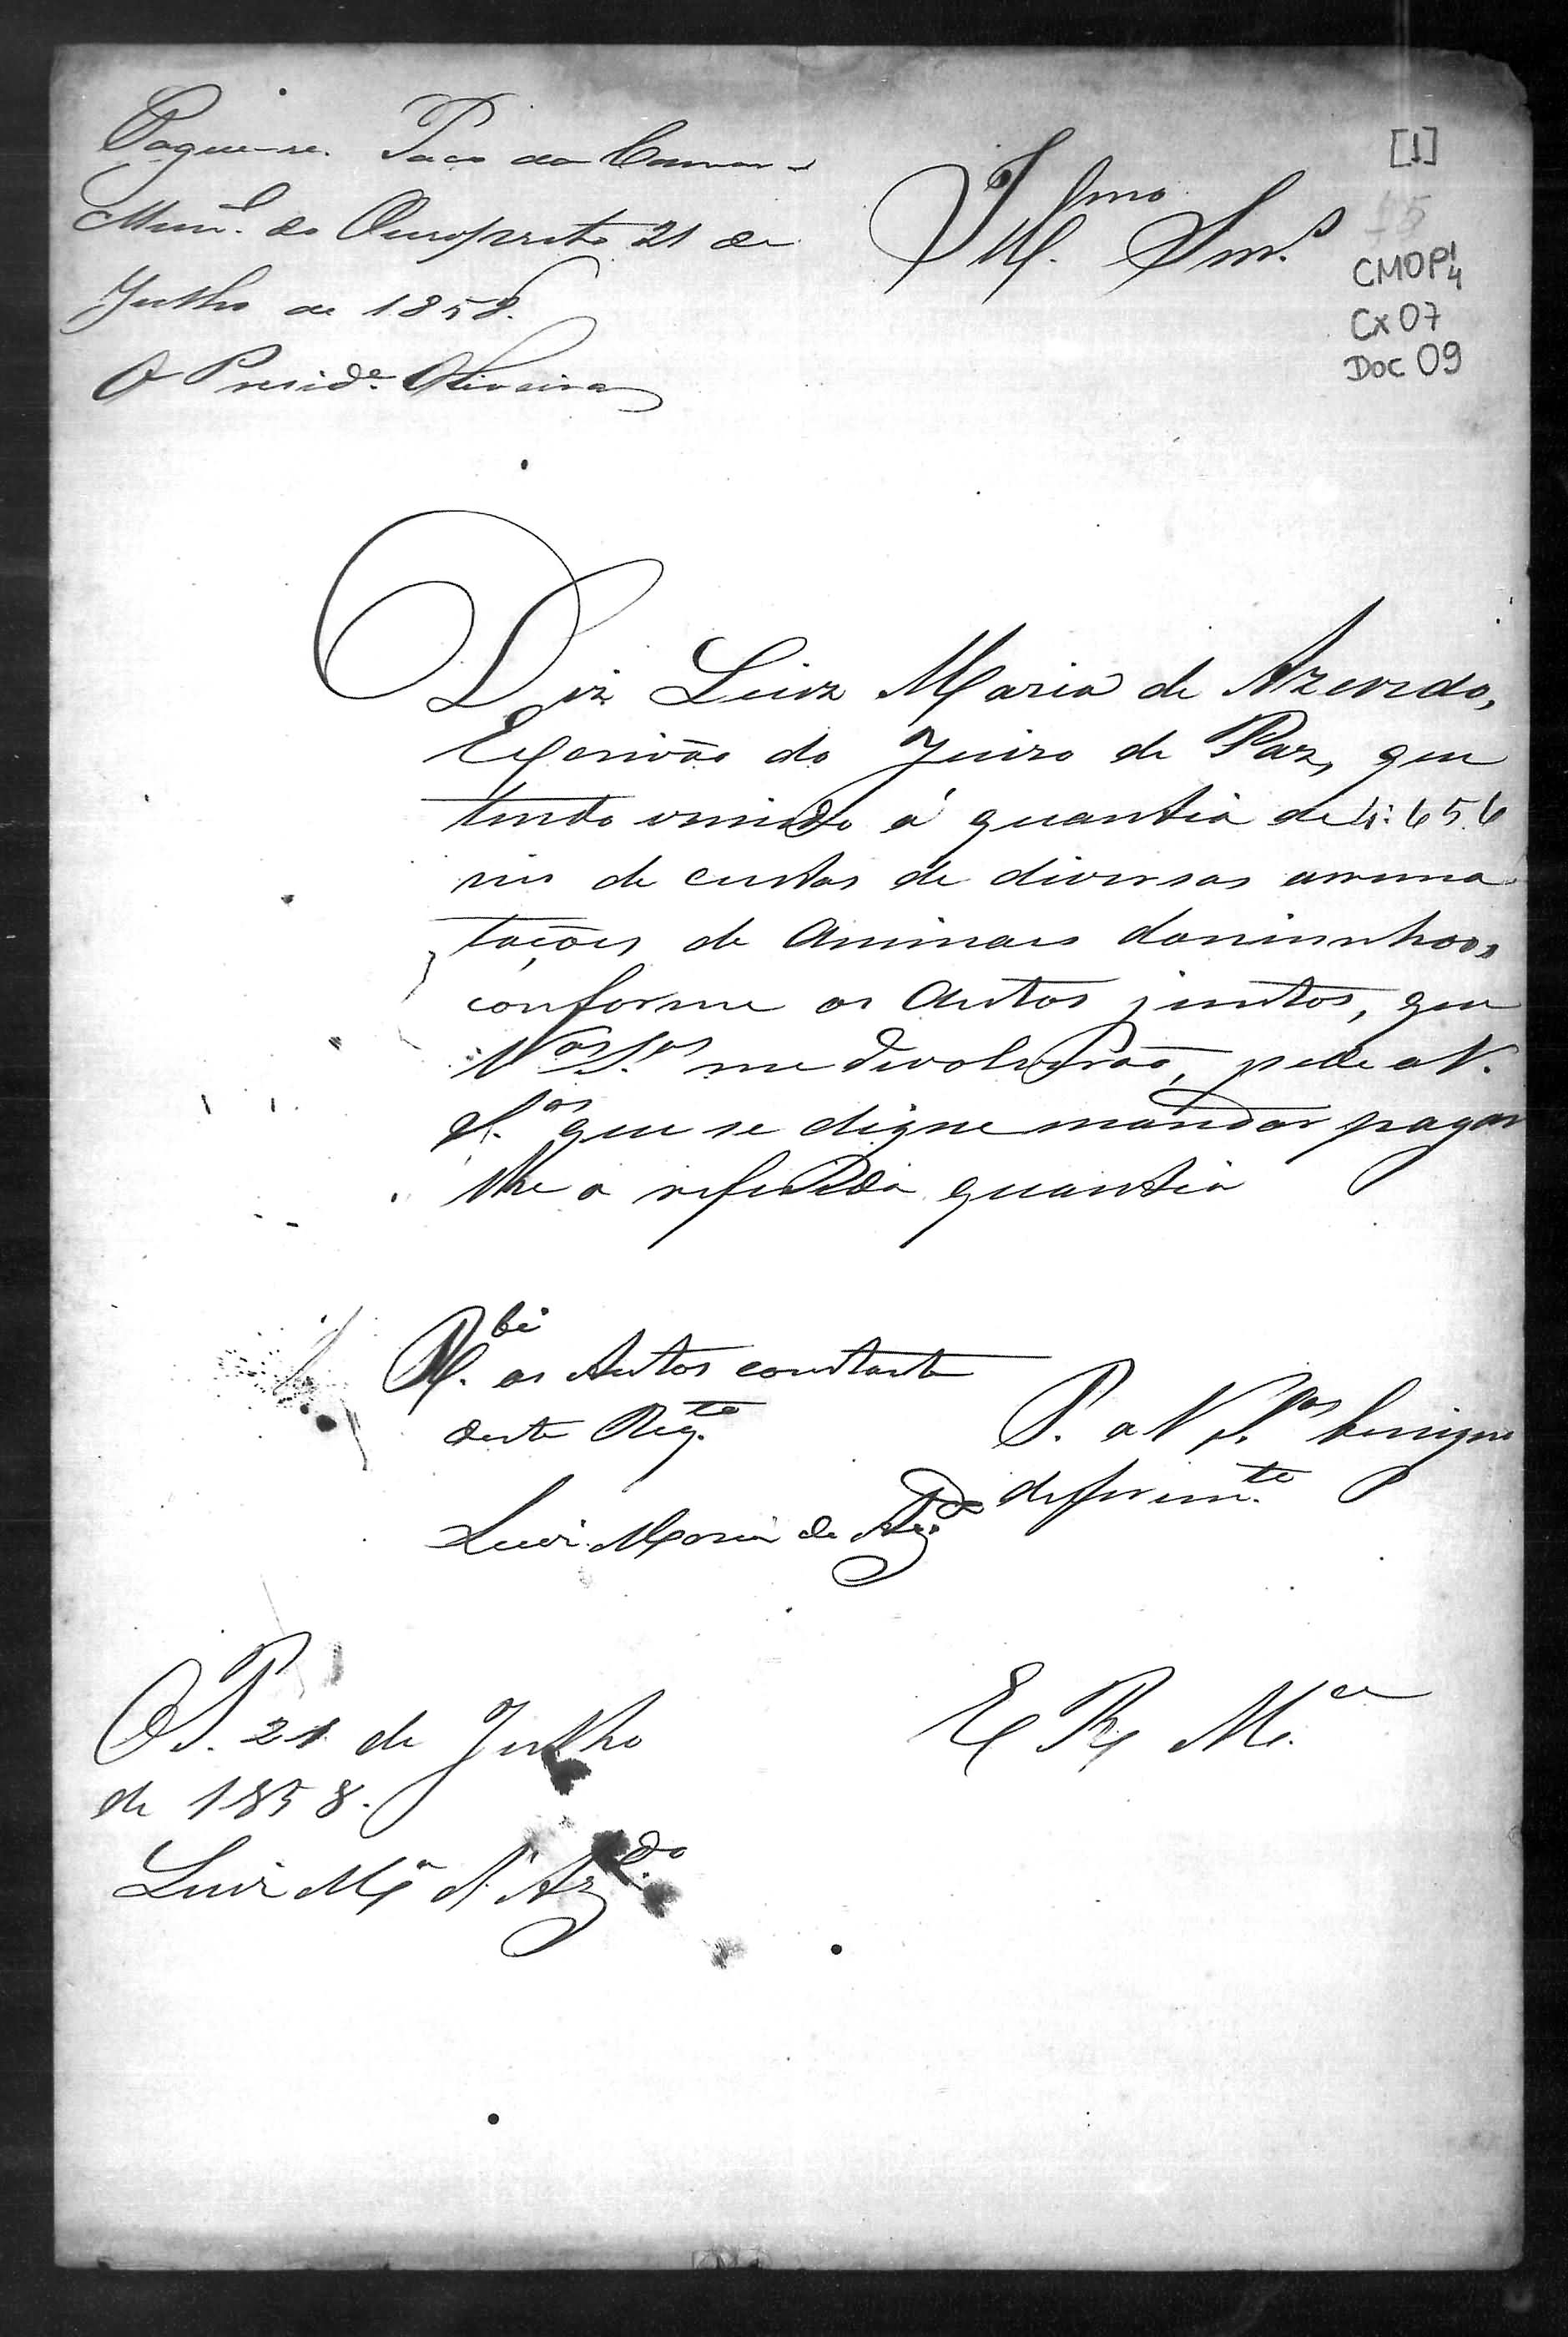 Pague-se. Paço da Camara
Mun.al do Ouropreto 21 de
Julho de 1858.
O Presid.e Oliveira
[1]
Ill.mo Snr.s
CMOP 1/4
Cx 07
Doc 09
Diz Luiz Maria de Azevedo,
Escrivão do Juizo de Paz, que
tendo vencido a quantia de 4:656
reis de custas de diversas arrema
tações de Animaes daninhos,
conforme os Autos juntos, que
V.as S.as me devolverão, pede a V.
S.as que se digne mandar pagar
lhe a referida quantia
R.bi os Autos constante
deste Req.to
Luiz Maria de Az.do
P. a V. S.as benigno
defferim.to
O P. 21 de Julho
de 1858.
Luiz M.a d'Az.do
E R M.ce